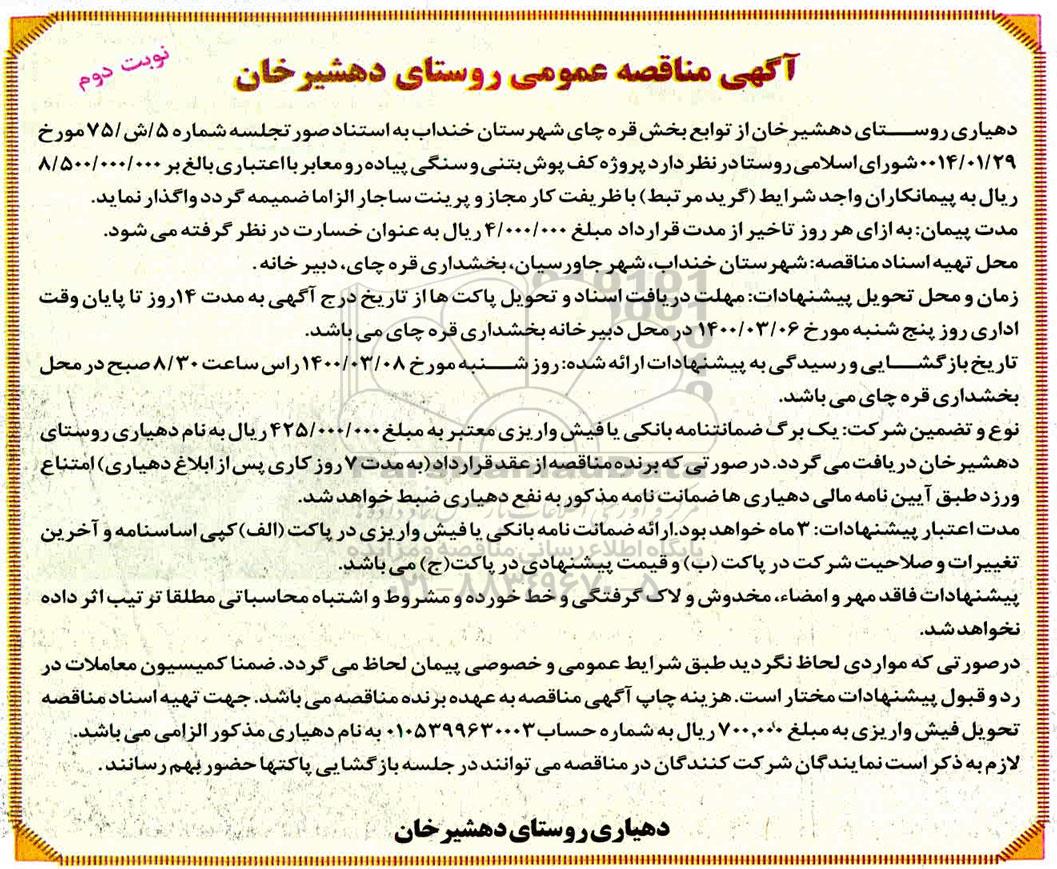 نوبت دوم
آگهی مناقصه عمومی روستای دهشیرخان
دهیاری روستای دهشیرخان از توابع بخش قره چای شهرستان خنداب به استناد صورتجلسه شماره ۵/ش/۷۵ مورخ
۰۰۱۴/۰۱/۲۹ شورای اسلامی روستا در نظر دارد پروژه کف پوش بتنی و سنگی پیاده رو معابر با اعتباری بالغ بر ۸/۵۰۰/۰۰۰/۰۰۰
ریال به پیمانکاران واجد شرایط (گرید مرتبط) با ظریفت کار مجاز و پرینت ساجار الزاما ضمیمه گردد واگذار نماید.
مدت پیمان: به ازای هر روز تاخیر از مدت قرارداد مبلغ ۴/۰۰۰/۰۰۰ ریال به عنوان خسارت در نظر گرفته می شود.
محل تهیه اسناد مناقصه: شهرستان خنداب، شهر جاورسیان، بخشداری قره چای، دبیر خانه.
زمان و محل تحویل پیشنهادات: مهلت دریافت اسناد و تحویل پاکت ها از تاریخ درج آگهی به مدت ۱۴روز تا پایان وقت
اداری روز پنج شنبه مورخ ۱۴۰۰/۰۳/۰۶ در محل دبیرخانه بخشداری قره چای می باشد.
تاریخ بازگشایی و رسیدگی به پیشنهادات ارائه شده: روز شنبه مورخ ۱۴۰۰/۰۳/۰۸ راس ساعت ۸/۳۰ صبح در محل
بخشداری قره چای می باشد.
نوع و تضمین شرکت: یک برگ ضمانتنامه بانکی یا فیش واریزی معتبر به مبلغ ۴۲۵/۰۰۰/۰۰۰ ریال به نام دهیاری روستای
دهشیرخان دریافت می گردد. در صورتی که برنده مناقصه از عقد قرارداد (به مدت ۷ روز کاری پس از ابلاغ دهیاری) امتناع
ورزد طبق آیین نامه مالی دهیاری ها ضمانت نامه مذکور به نفع دهیاری ضبط خواهد شد.
مدت اعتبار پیشنهادات: ۳ ماه خواهد بود.ارائه ضمانت نامه بانکی یا فیش واریزی در پاکت (الف) کپی اساسنامه و آخرین
تغییرات و صلاحیت شرکت در پاکت (ب) و قیمت پیشنهادی در پاکت (ج) می باشد.
پیشنهادات فاقد مهر و امضاء، مخدوش و لاک گرفتگی و خط خورده و مشروط و اشتباه محاسباتی مطلقا ترتیب اثر داده
نخواهد شد.
درصورتی که مواردی لحاظ نگردید طبق شرایط عمومی و خصوصی پیمان لحاظ می گردد. ضمنا کمیسیون معاملات در
رد و قبول پیشنهادات مختار است. هزینه چاپ آگهی مناقصه به عهده برنده مناقصه می باشد. جهت تهیه اسناد مناقصه
تحویل فیش واریزی به مبلغ ۷۰۰,۰۰۰ ریال به شماره حساب ۰۱۰۵۳۹۹۶۳۰۰۰۳ به نام دهیاری مذکور الزامی می باشد.
لازم به ذکر است نمایندگان شرکت کنندگان در مناقصه می توانند در جلسه بازگشایی پاکتها حضور بهم رسانند.
دهیاری روستای دهشیرخان
ParsNamadData
پایگاه اطلاع رسانی مناقصه و مزایده
۰۲۱-۸۸۳۴۹۶۷۰-۵